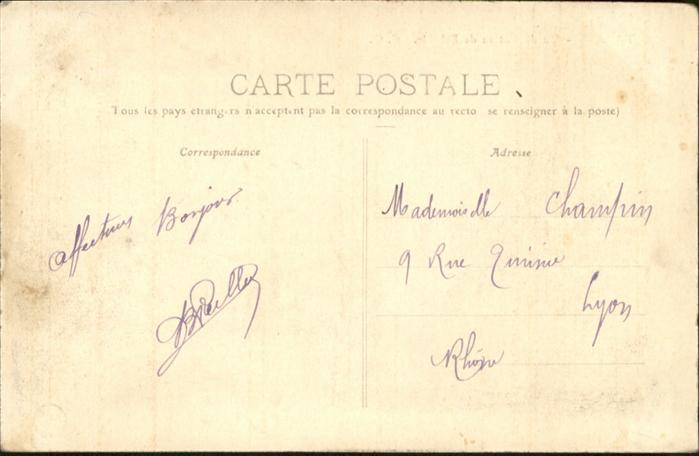 CARTE POSTALE
Tous les pays etrangers n'acceptent pas la correspondance au recto se renseigner à la poste)
Correspondance
Affectueux Bonjour
Adresse
Mademoiselle Champin
9 Rue
Lyon
Rhône